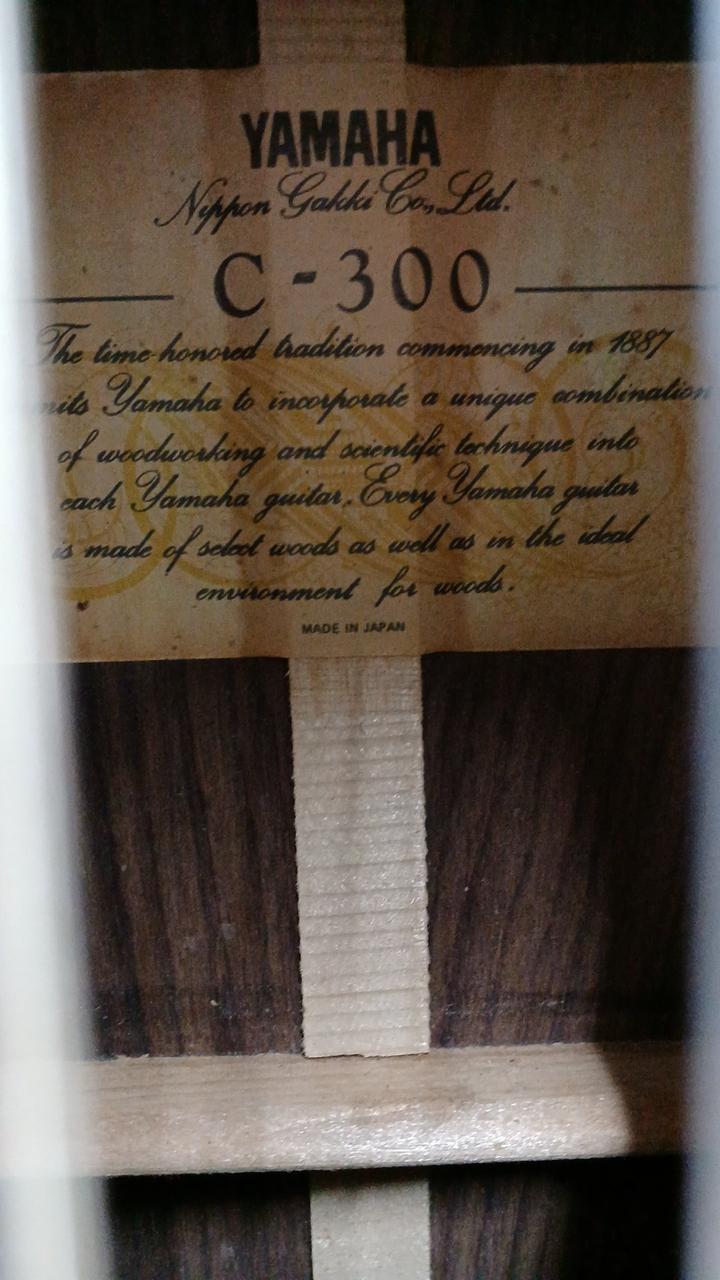 YAMAHA
Nippon Gakki Co., Ltd.
C-300
The time-honored tradition commencing in 1887
Yamaha to incorporate a unique combination
of woodworking and scientific technique into
each Yamaha guitar. Every Yamaha guitar
is made of select woods as well as in the ideal
environment for woods.
MADE IN JAPAN